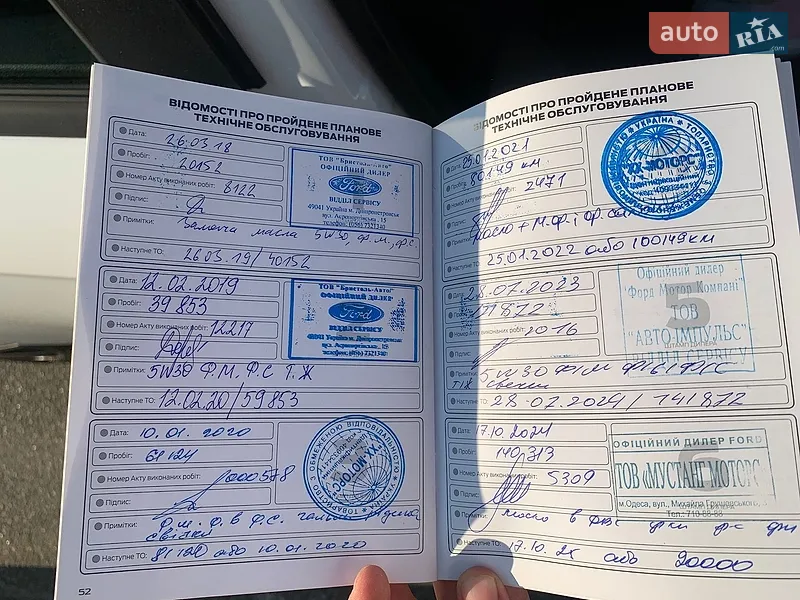 auto RIA.com
ВІДОМОСТІ ПРО ПРОЙДЕНЕ ПЛАНОВЕ
ТЕХНІЧНЕ ОБСЛУГОВУВАННЯ
Дата: 26.03.18
Пробіг: 20152
Номер Акту виконаних робіт: 8122
Підпис:
ТОВ "Бристоль-Авто"
ОФІЦІЙНИЙ ДИЛЕР
Ford
ВІДДІЛ СЕРВІСУ
49041 Україна м. Дніпропетровськ
вул. Аеропортівська, 15
телефон: (056) 7321340
Примітки: Заміна масла 5W30, Ф.М., Ф.С.
Наступне ТО: 26.03.19/40152
Дата: 12.02.2019
Пробіг: 39853
Номер Акту виконаних робіт: 12217
Підпис:
ТОВ "Бристоль-Авто"
ОФІЦІЙНИЙ ДИЛЕР
Ford
ВІДДІЛ СЕРВІСУ
49041 Україна м. Дніпропетровськ
вул. Аеропортівська, 15
телефон: (056) 7321340
Примітки: 5W30 Ф.М. Ф.С Т.Ж
Наступне ТО: 12.02.20/59853
Дата: 10.01.2020
Пробіг: 61124
Номер Акту виконаних робіт: 0000578
Підпис:
Примітки: Ф.М. Ф.В Ф.С.
свічки
Наступне ТО: 81120 або 10.01.2020
52
ВІДОМОСТІ ПРО ПРОЙДЕНЕ ПЛАНОВЕ
ТЕХНІЧНЕ ОБСЛУГОВУВАННЯ
Дата: 25.01.2021
Пробіг: 80149 км
Номер Акту виконаних робіт: 2471
Підпис:
УКРАЇНА
МОТОРС
Примітки: масло + М.Ф; Ф.
Наступне ТО: 25.01.2022 або 100149 км
Дата: 28.07.2023
Пробіг: 121872
Номер Акту виконаних робіт: 2016
Підпис:
Офіційний дилер
"Форд Мотор Компані"
ТОВ
"АВТОІМПУЛЬС"
ШТАМП ДИЛЕРА
ВІДДІЛ СЕРВІСУ
5
Примітки: 5W30
Т/Ж свечки
Наступне ТО: 28.07.2024 / 141872
Дата: 17.10.2024
Пробіг: 140313
Номер Акту виконаних робіт: 5309
Підпис:
ОФІЦІЙНИЙ ДИЛЕР FORD
6
ТОВ «МУСТАНГ МОТОРС»
м.Одеса, вул. Михайла Грушевського,
Тел.: 710-88-88
Примітки: масло в
Наступне ТО: 17.10.2 або 20000